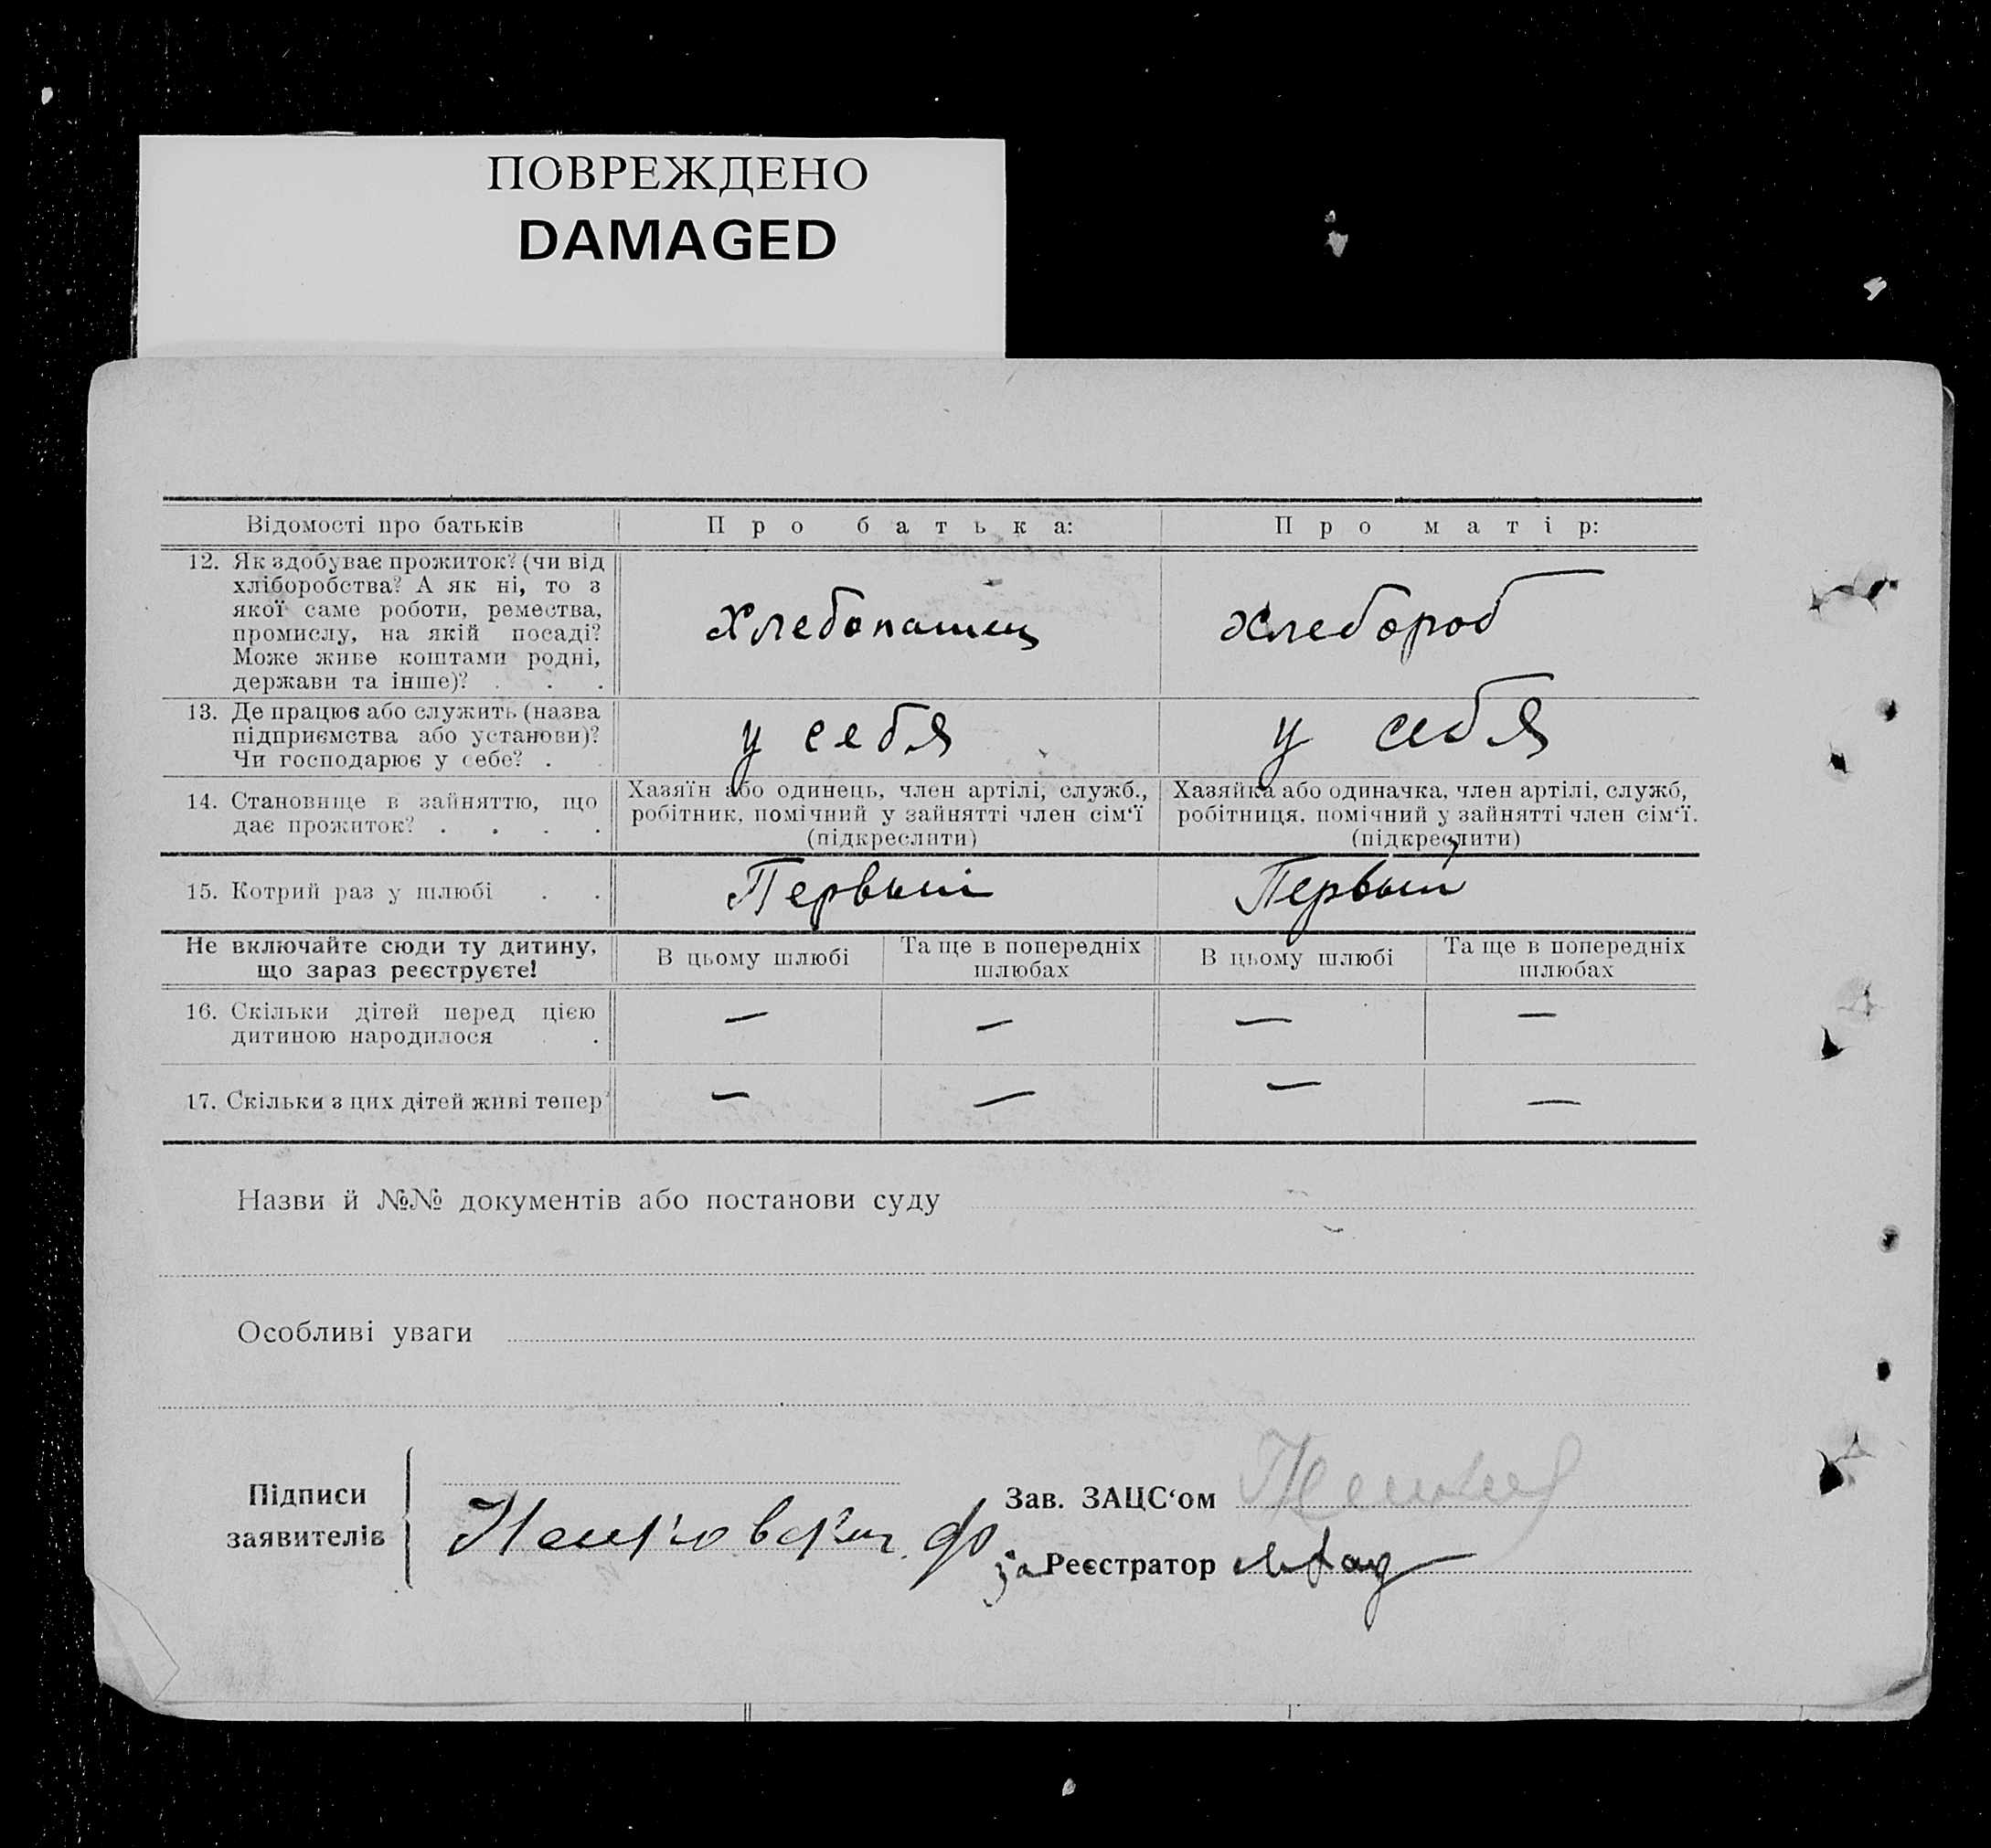 ПОВРЕЖДЕНО
DAMAGED
Відомості про батьків
Про батька:
Про матір:
12. Як здобуває прожиток? (чи від
хліборобства? А як ні, то з
якої саме роботи, ремества,
промислу, на якій посаді?
Може живе коштами родні,
держави та інше)? . . .
Хлебопашец
хлебороб
13. Де працює або служить (назва
підприємства або установи)?
Чи господарює у себе? .
у себя
у себя
14. Становище в зайняттю, що
дає прожиток? . . . .
Хазяїн або одинець, член артілі, служб.,
робітник, помічний у зайнятті член сім‘ї
(підкреслити)
Хазяйка або одиначка, член артілі, служб,
робітниця, помічний у зайнятті член сім‘ї.
(підкреслити)
15. Котрий раз у шлюбі . .
Первый
Первый
Не включайте сюди ту дитину,
що зараз реєструєте!
В цьому шлюбі
Та ще в попередніх
шлюбах
В цьому шлюбі
Та ще в попередніх
шлюбах
16. Скільки дітей перед цією
дитиною народилося .
— — — —
17. Скільки з цих дітей живі тепер
— — — —
Назви й №№ документів або постанови суду
Особливі уваги
Підписи
заявителів
Зав. ЗАЦС‘ом
за Реєстратор